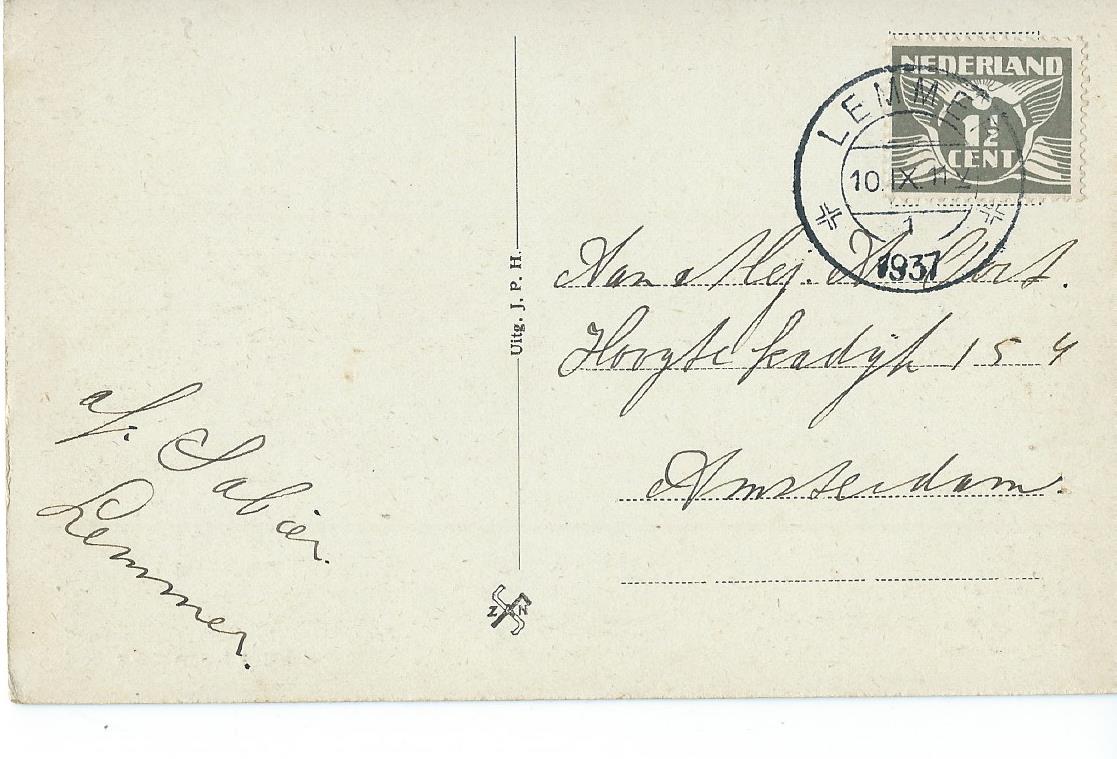 NEDERLAND
1½
CENT
LEMMER
10.IX.11 V
1
1937
Uitg. J. P. H.
Aan Mej.
Hoogte kadijk 154
Amsterdam.
af. Sabier.
Lemmer.
Z N